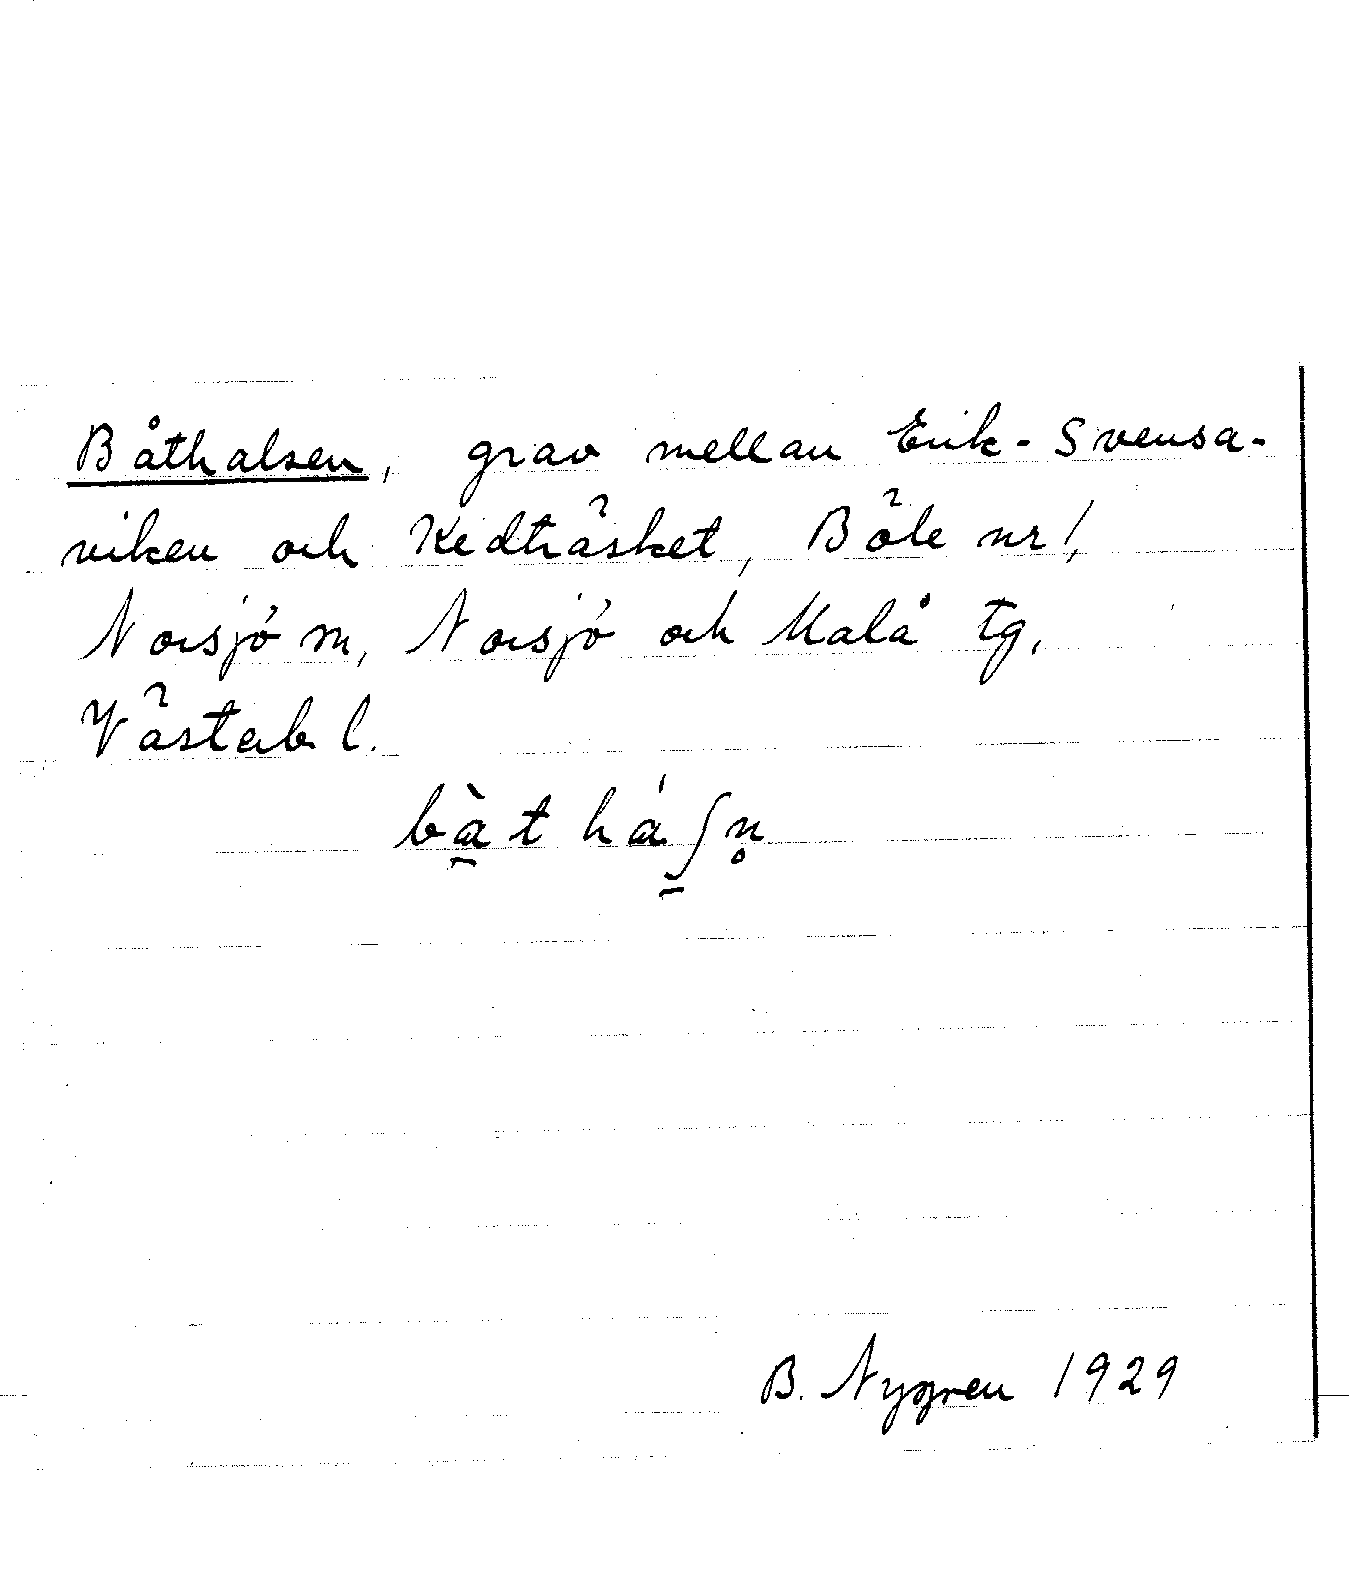 Båthalsen, grav mellan Erik-Svensa-
viken och Kedträsket, Böle nr 1,
Norsjö sn, Norsjö och Malå tg,
Västerb. l.
bàt háʃn̥
B. Nygren 1929